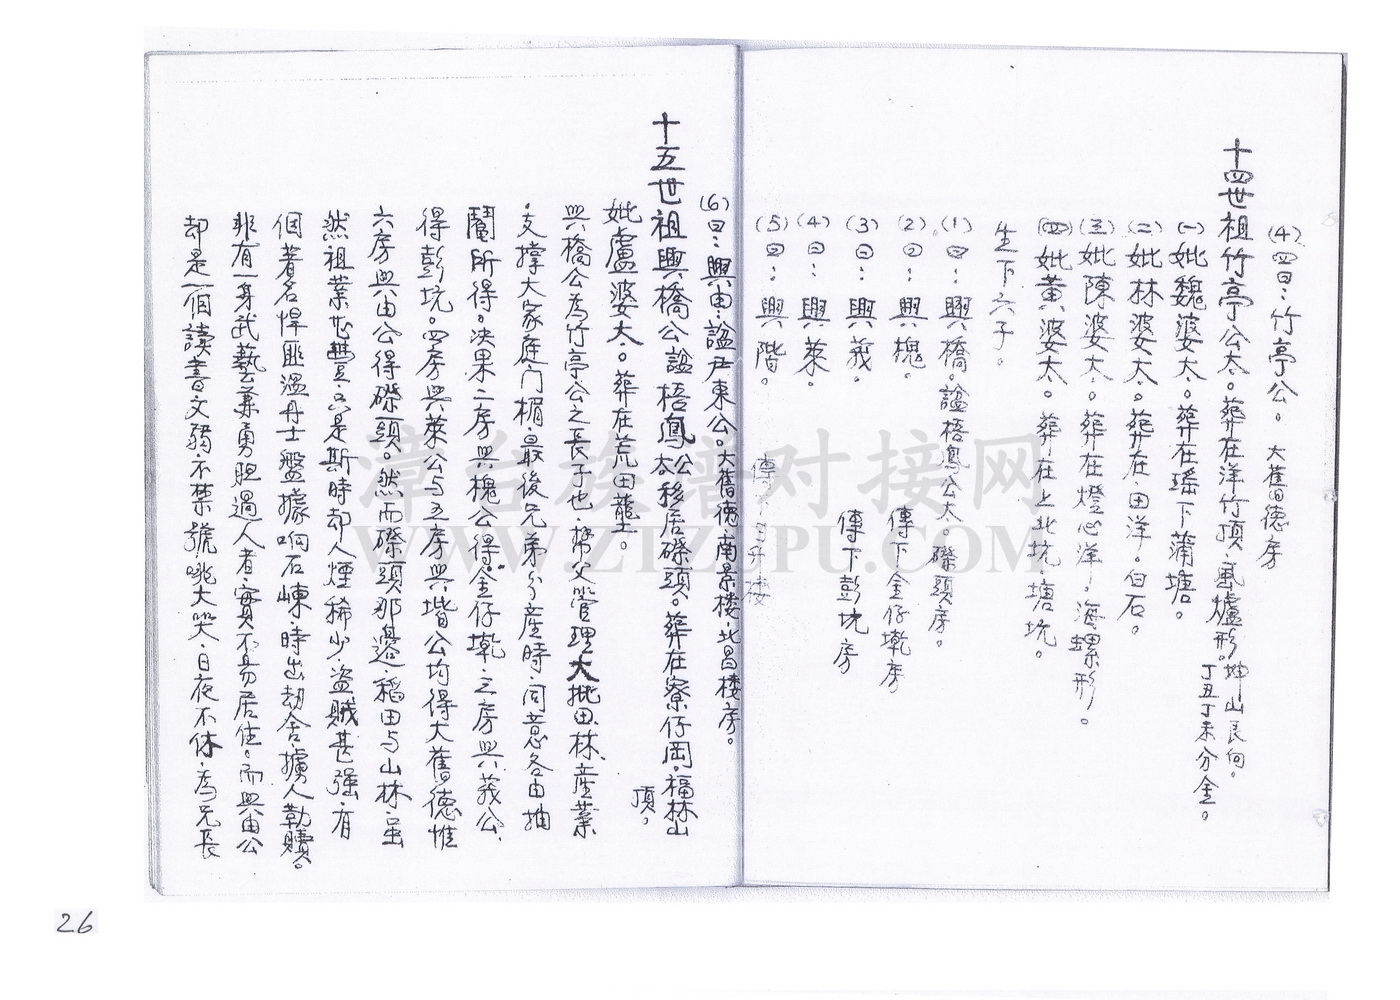 (4)四曰：竹亭公。大舊德房
十四世祖竹亭公太。葬在洋竹頂，風爐形。坤山艮向。
丁丑丁未分金。
(一)妣魏婆太。葬在瑶下蒲塘。
(二)妣林婆太。葬在田洋。白石。
(三)妣陳婆太。葬在燈心洋，海螺形。
(四)妣黄婆太。葬在上北坑塘坑。
生下六子。
(1)曰：興橋。諡梧鳳公太。磜頭房。
(2)曰：興槐。傳下金仔墘房
(3)曰：興義。傳下彭坑房
(4)曰：興萊。
(5)曰：興階。傳下日升樓
(6)曰：興由：諡尹東公。大舊德，南景楼，北昌楼房。
十五世祖興橋公諡梧鳳公太移居磜頭。葬在寮仔岡。福林山
頂。
妣盧婆太。葬在荒田壟。
興橋公為竹亭公之長子也，幫父管理大批田林，產業
，支撑大家庭门楣，最後兄弟分產時，同意各由抽
鬮所得。决果二房興槐公得金仔墘，三房興義公
得彭坑。四房興萊公与五房興階公均得大舊德惟
六房興由公得磜頭。然而磜頭那邊稻田与山林，虽
然祖業甚豐，只是斯時却人煙稀少，盗賊甚强，有
個著名悍匪温丹士盤據响石崠，時出劫舍，擄人勒贖。
非有一身武藝兼勇胆過人者，實不易居住。而興由公
却是一個讀書文弱，不禁號咷大哭，日夜不休，為兄長
26
漳台族谱对接网
WWW.ZTZUPU.COM